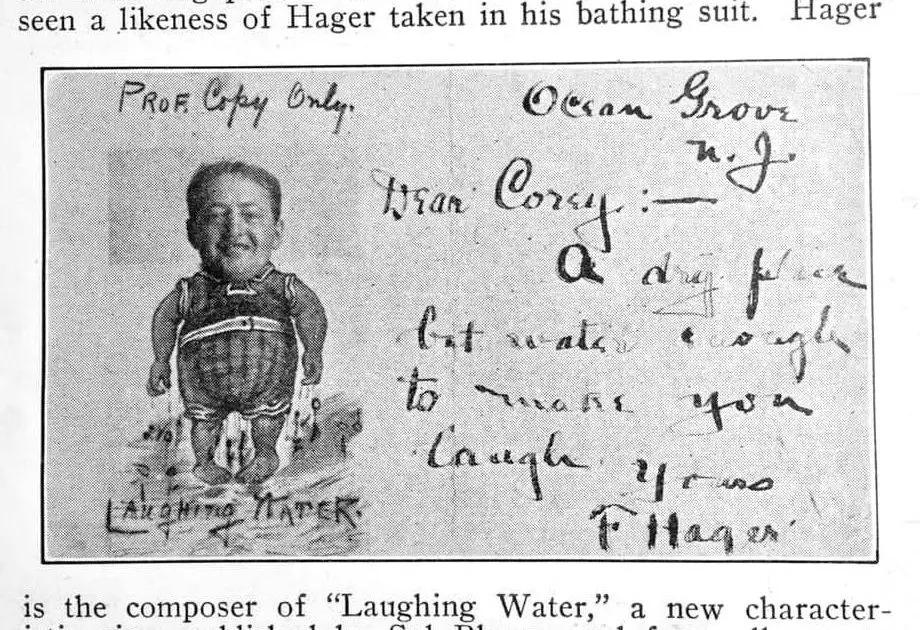 seen a likeness of Hager taken in his bathing suit. Hager
PROF. Copy Only.
Ocean Grove
N. J.
Dear Corey:—
A dry place
but water enough
to make you
laugh
Yours
F Hager
LAUGHING WATER.
is the composer of “Laughing Water,” a new character-